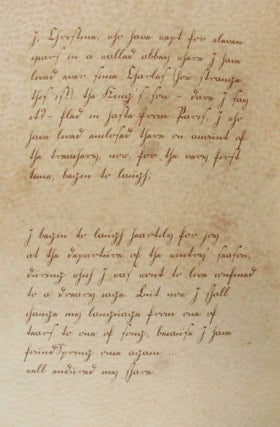 I, Christine, who have wept for eleven
years in a walled abbey where I have
lived ever since Charles (how strange
this is!) the King's son – dare I say
it? – fled in haste from Paris, I who
have lived enclosed there on account of
the treachery, now, for the very first
time, begin to laugh;
I begin to laugh heartily for joy
at the departure of the wintry season,
during which I was wont to live confined
to a dreary cage. But now I shall
change my language from one of
tears to one of song, because I have
found Spring once again...
well endured my share.